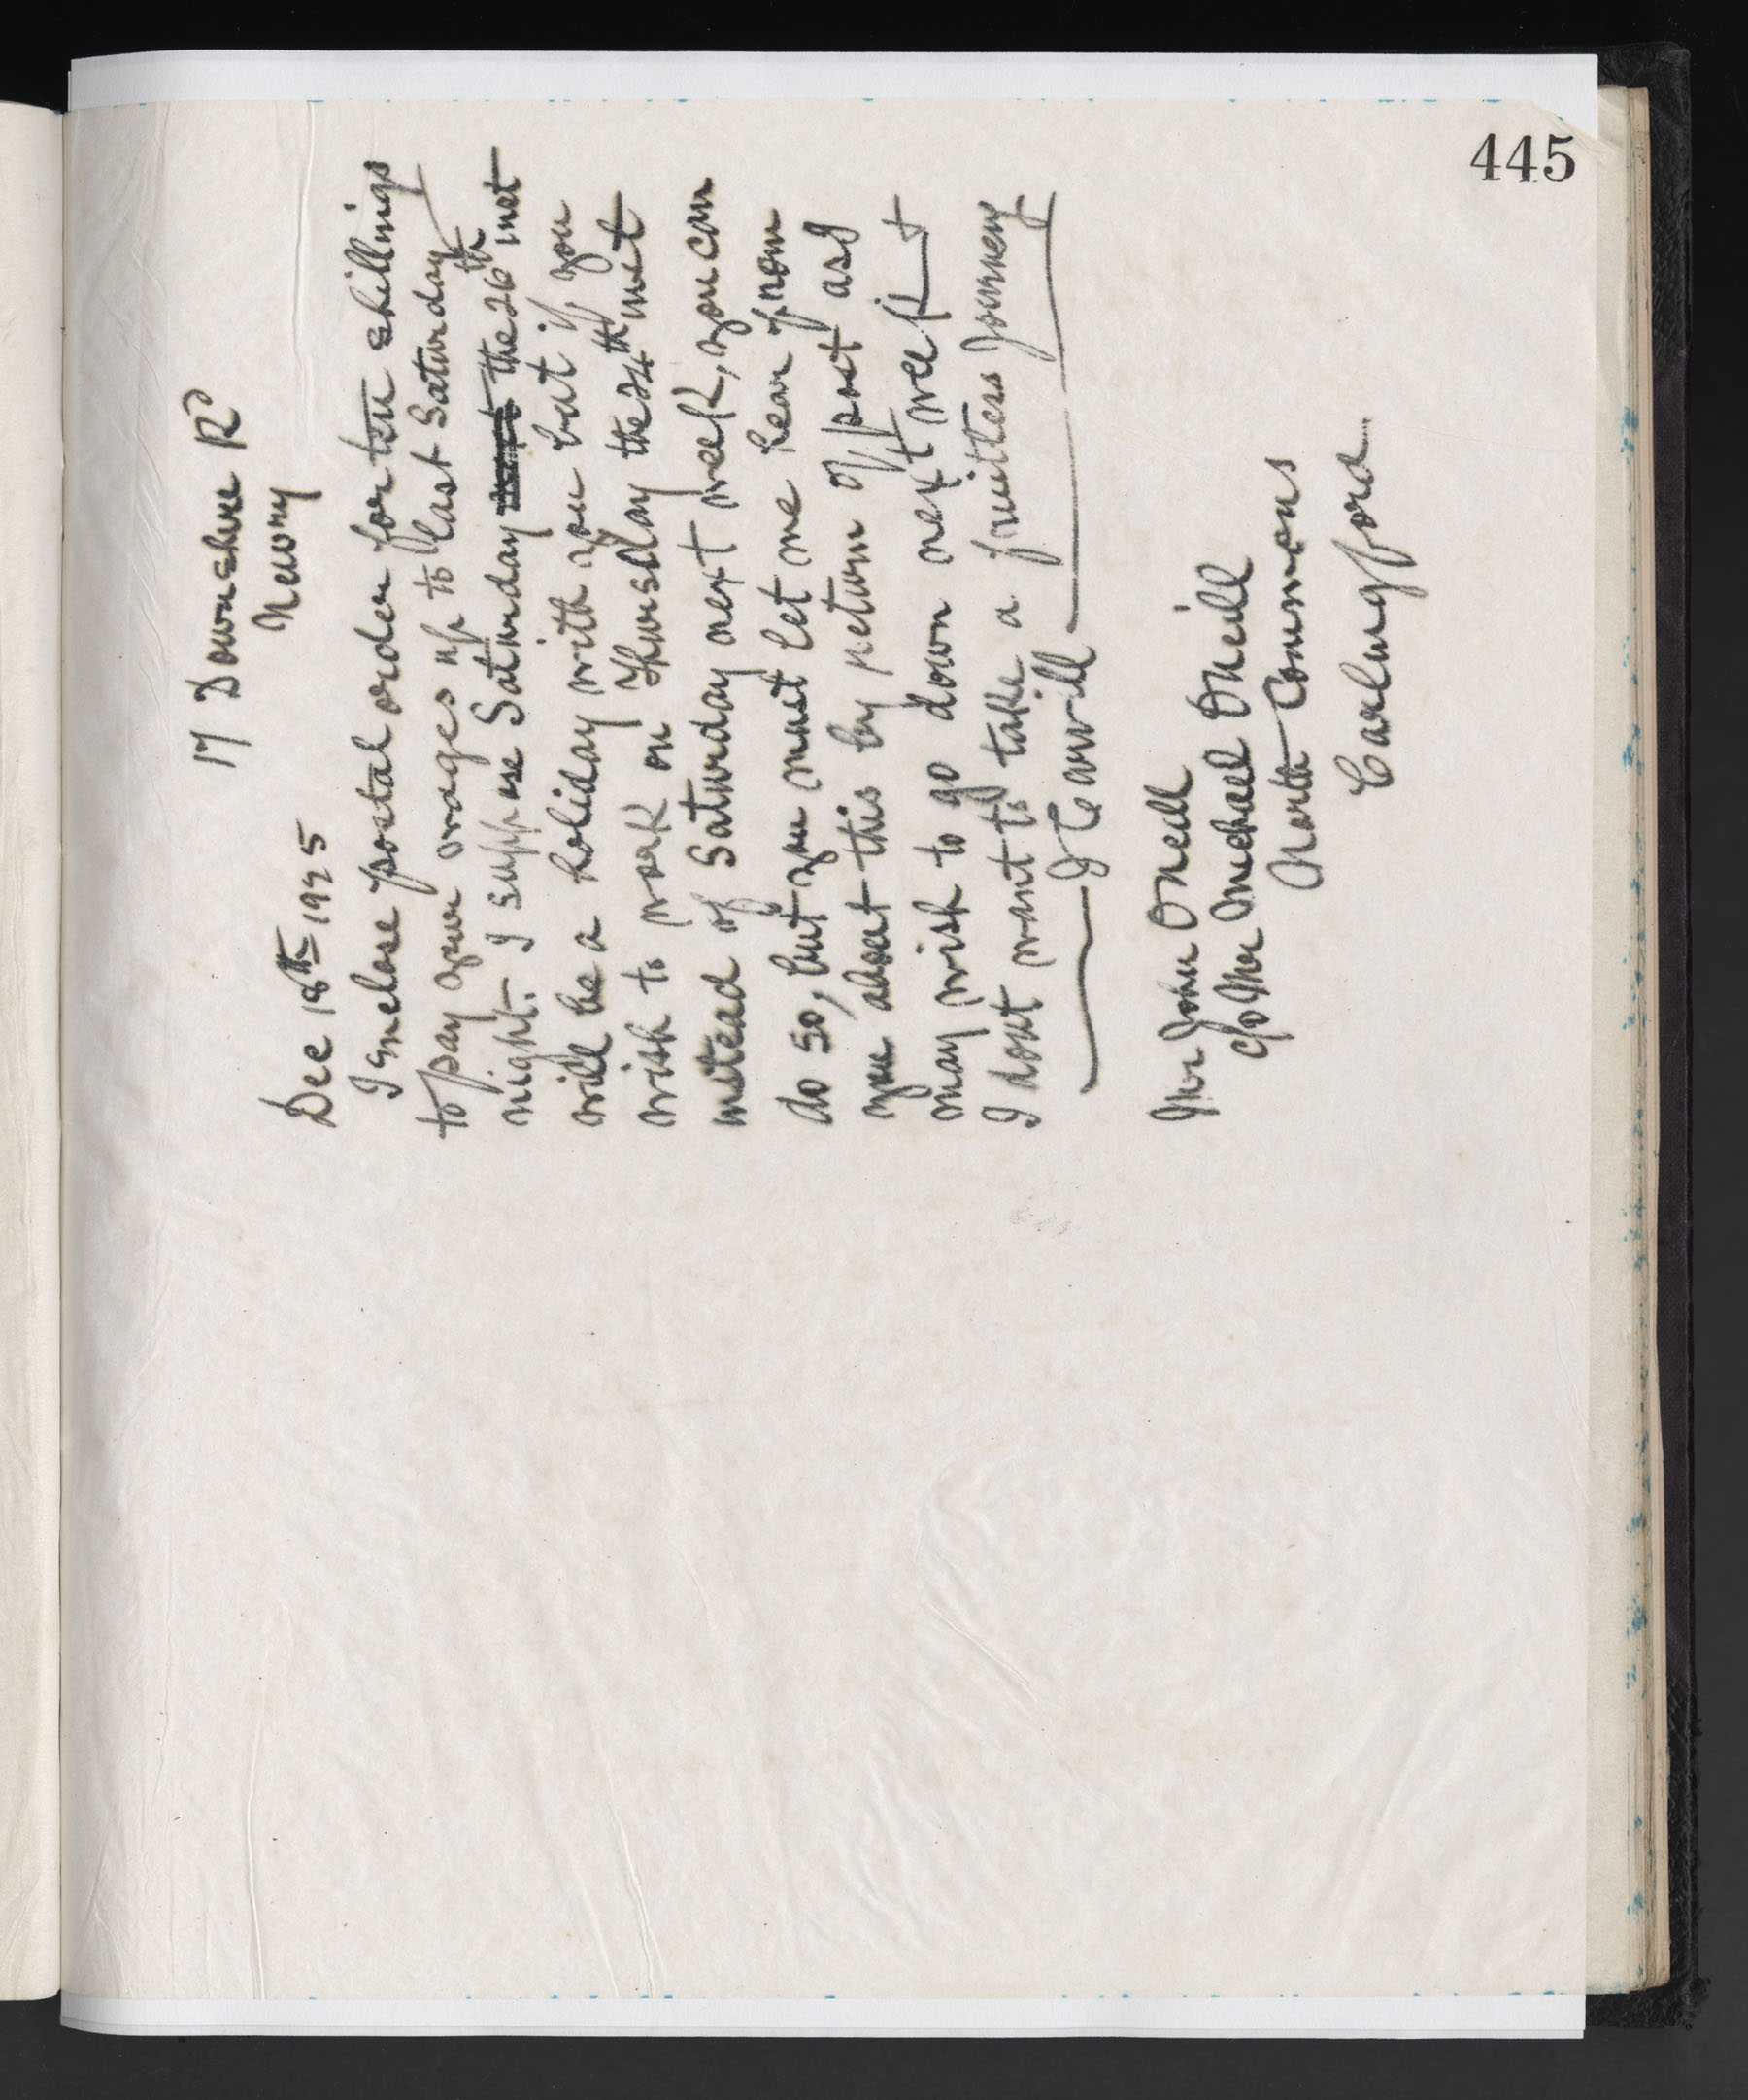 445
17 Downshire Rd
Newry
Dec 18th 1925
I enclose postal order for ten shillings
to pay your wages up to last Saturday
night. I suppose Saturday the 26th inst
will be a holiday with you but if you
wish to work on Thursday the 24th inst
instead of Saturday next week, you can
do so, but you must let me hear from
you about this by return of post as I
may wish to go down next week &
I dont want to take a fruitless Journey
Mr John ONeill
c/o Mr Michael ONeill
North Commons
Carlingford